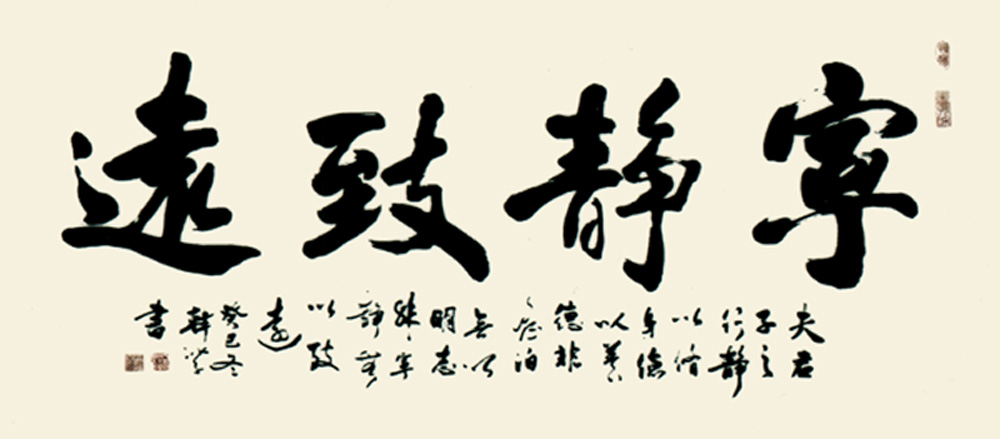 寧靜致遠
夫君
子之
行靜
以修
身儉
以養
德非
澹泊
無以
明志
非寧
靜無
以致
遠
癸巳冬
書